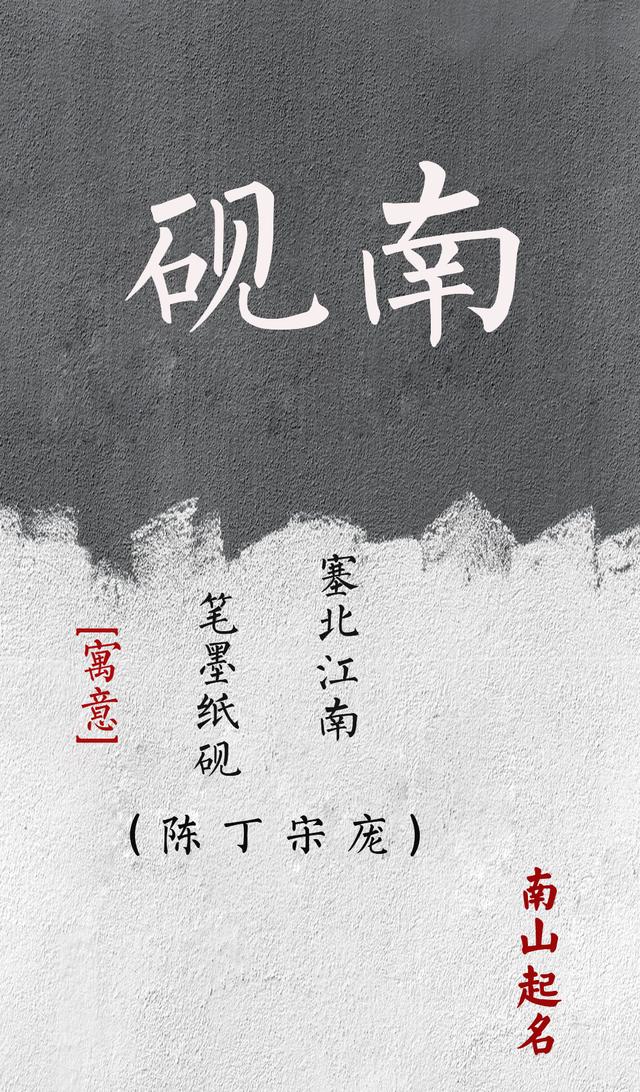 砚南
[寓意]
笔墨纸砚
塞北江南
(陈丁宋庞)
南山起名